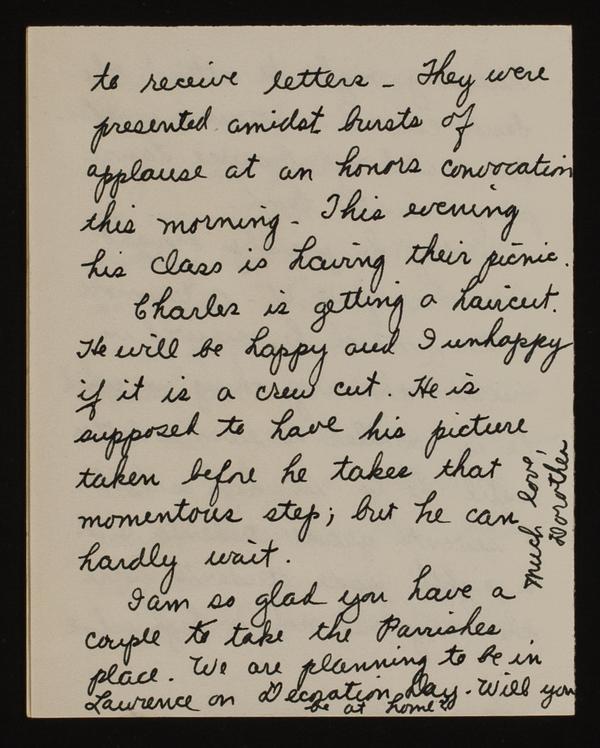 to receive letters - They were
presented amidst bursts of
applause at an honors convocation
this morning - This evening
his class is having their picnic.
Charles is getting a haircut.
He will be happy and I unhappy
if it is a crew cut. He is
supposed to have his picture
taken before he takes that
momentous step; but he can
hardly wait.
I am so glad you have a
couple to take the Parrishes
place. We are planning to be in
Lawrence on Decoration Day. Will you
be at home?
Much love,
Dorothea